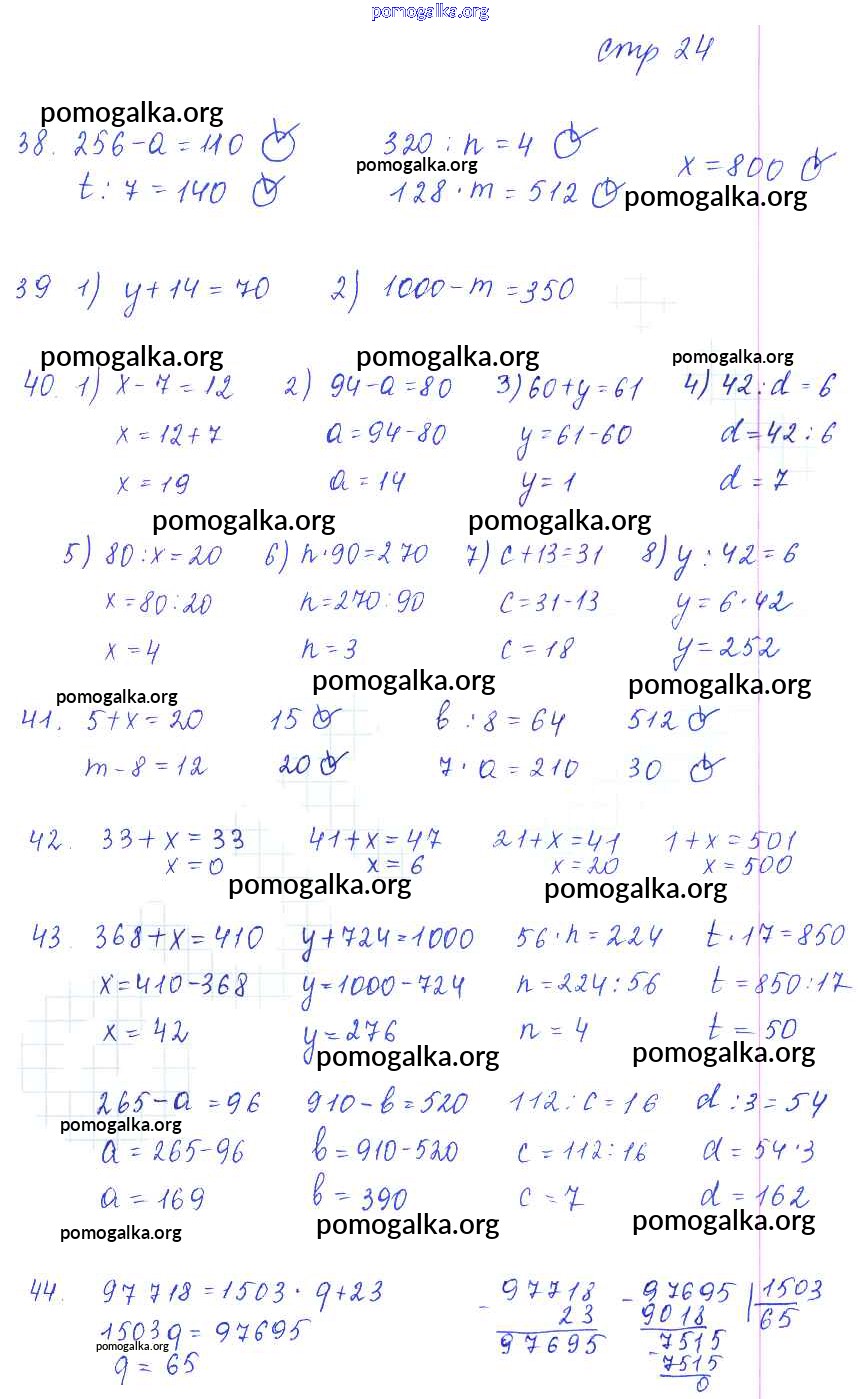 pomogalka.org
стр 24
pomogalka.org
38. 256-a=110 320:n=4
pomogalka.org
x=800
t:7=140 128·m=512
pomogalka.org
39 1) y+14=70 2) 1000-m=350
pomogalka.org pomogalka.org pomogalka.org
40. 1) x-7=12 2) 94-a=80 3) 60+y=61 4) 42:d=6
x=12+7 a=94-80 y=61-60 d=42:6
x=19 a=14 y=1 d=7
pomogalka.org pomogalka.org
5) 80:x=20 6) n·90=270 7) c+13=31 8) y:42=6
x=80:20 n=270:90 c=31-13 y=6·42
x=4 n=3 c=18 y=252
pomogalka.org pomogalka.org pomogalka.org
41. 5+x=20 15 b:8=64 512
m-8=12 20 7·a=210 30
42. 33+x=33 41+x=47 21+x=41 1+x=501
x=0 x=6 x=20 x=500
pomogalka.org pomogalka.org
43. 368+x=410 y+724=1000 56·n=224 t·17=850
x=410-368 y=1000-724 n=224:56 t=850:17
x=42 y=276 n=4 t=50
pomogalka.org pomogalka.org
265-a=96 910-b=520 112:c=16 d:3=54
pomogalka.org
a=265-96 b=910-520 c=112:16 d=54·3
a=169 b=390 c=7 d=162
pomogalka.org pomogalka.org pomogalka.org
44. 97718=1503·q+23 97718 - 97695 1503
1503q=97695 - 23 9018 65
pomogalka.org
97695 7515
q=65 - 7515
0